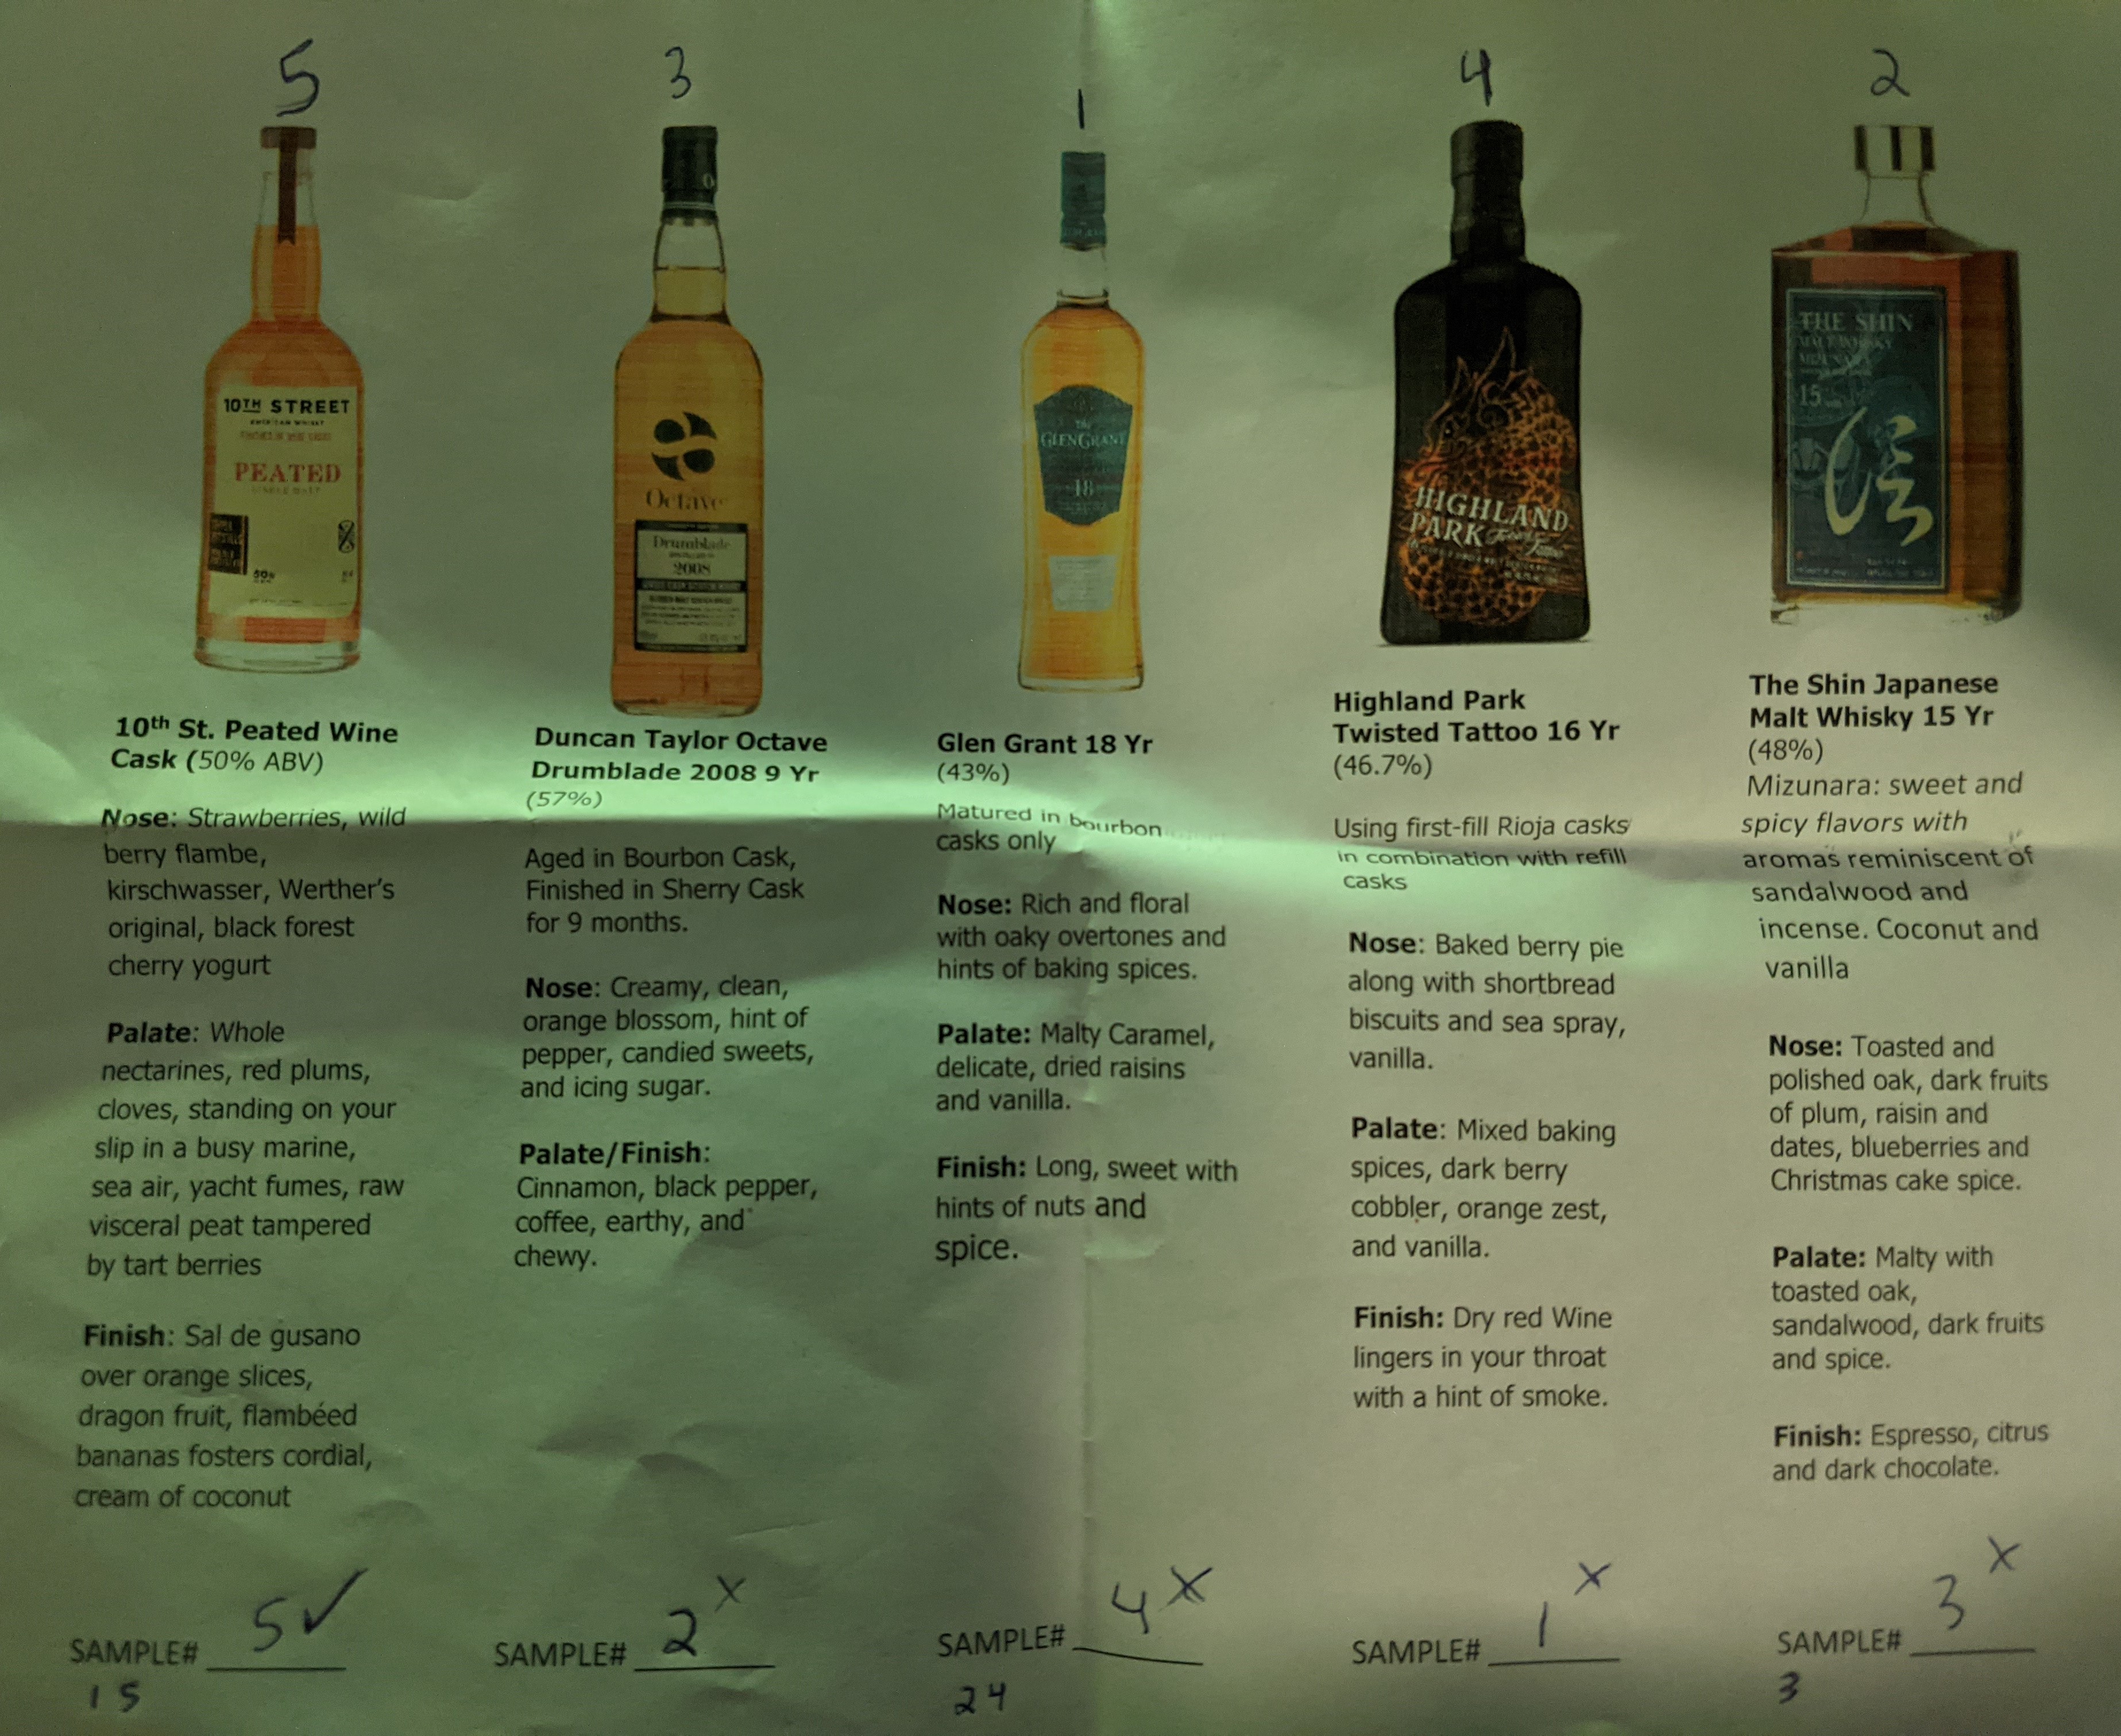 5
3
1
4
2
10TH STREET
AMERICAN WHISKY
PEATED
SINGLE MALT
Octave
Drumblade
2008
The
GLENGRANT
18
HIGHLAND
PARK
THE SHIN
MALT WHISKY
MIZUNARA
15
10th St. Peated Wine
Cask (50% ABV)
Nose: Strawberries, wild
berry flambe,
kirschwasser, Werther's
original, black forest
cherry yogurt
Palate: Whole
nectarines, red plums,
cloves, standing on your
slip in a busy marine,
sea air, yacht fumes, raw
visceral peat tampered
by tart berries
Finish: Sal de gusano
over orange slices,
dragon fruit, flambéed
bananas fosters cordial,
cream of coconut
SAMPLE# 5 ✓
1 5
Duncan Taylor Octave
Drumblade 2008 9 Yr
(57%)
Aged in Bourbon Cask,
Finished in Sherry Cask
for 9 months.
Nose: Creamy, clean,
orange blossom, hint of
pepper, candied sweets,
and icing sugar.
Palate/Finish:
Cinnamon, black pepper,
coffee, earthy, and
chewy.
SAMPLE# 2 x
Glen Grant 18 Yr
(43%)
Matured in bourbon
casks only
Nose: Rich and floral
with oaky overtones and
hints of baking spices.
Palate: Malty Caramel,
delicate, dried raisins
and vanilla.
Finish: Long, sweet with
hints of nuts and
spice.
SAMPLE# 4 x
2 4
Highland Park
Twisted Tattoo 16 Yr
(46.7%)
Using first-fill Rioja casks
in combination with refill
casks
Nose: Baked berry pie
along with shortbread
biscuits and sea spray,
vanilla.
Palate: Mixed baking
spices, dark berry
cobbler, orange zest,
and vanilla.
Finish: Dry red Wine
lingers in your throat
with a hint of smoke.
SAMPLE# 1 x
The Shin Japanese
Malt Whisky 15 Yr
(48%)
Mizunara: sweet and
spicy flavors with
aromas reminiscent of
sandalwood and
incense. Coconut and
vanilla
Nose: Toasted and
polished oak, dark fruits
of plum, raisin and
dates, blueberries and
Christmas cake spice.
Palate: Malty with
toasted oak,
sandalwood, dark fruits
and spice.
Finish: Espresso, citrus
and dark chocolate.
SAMPLE# 3 x
3